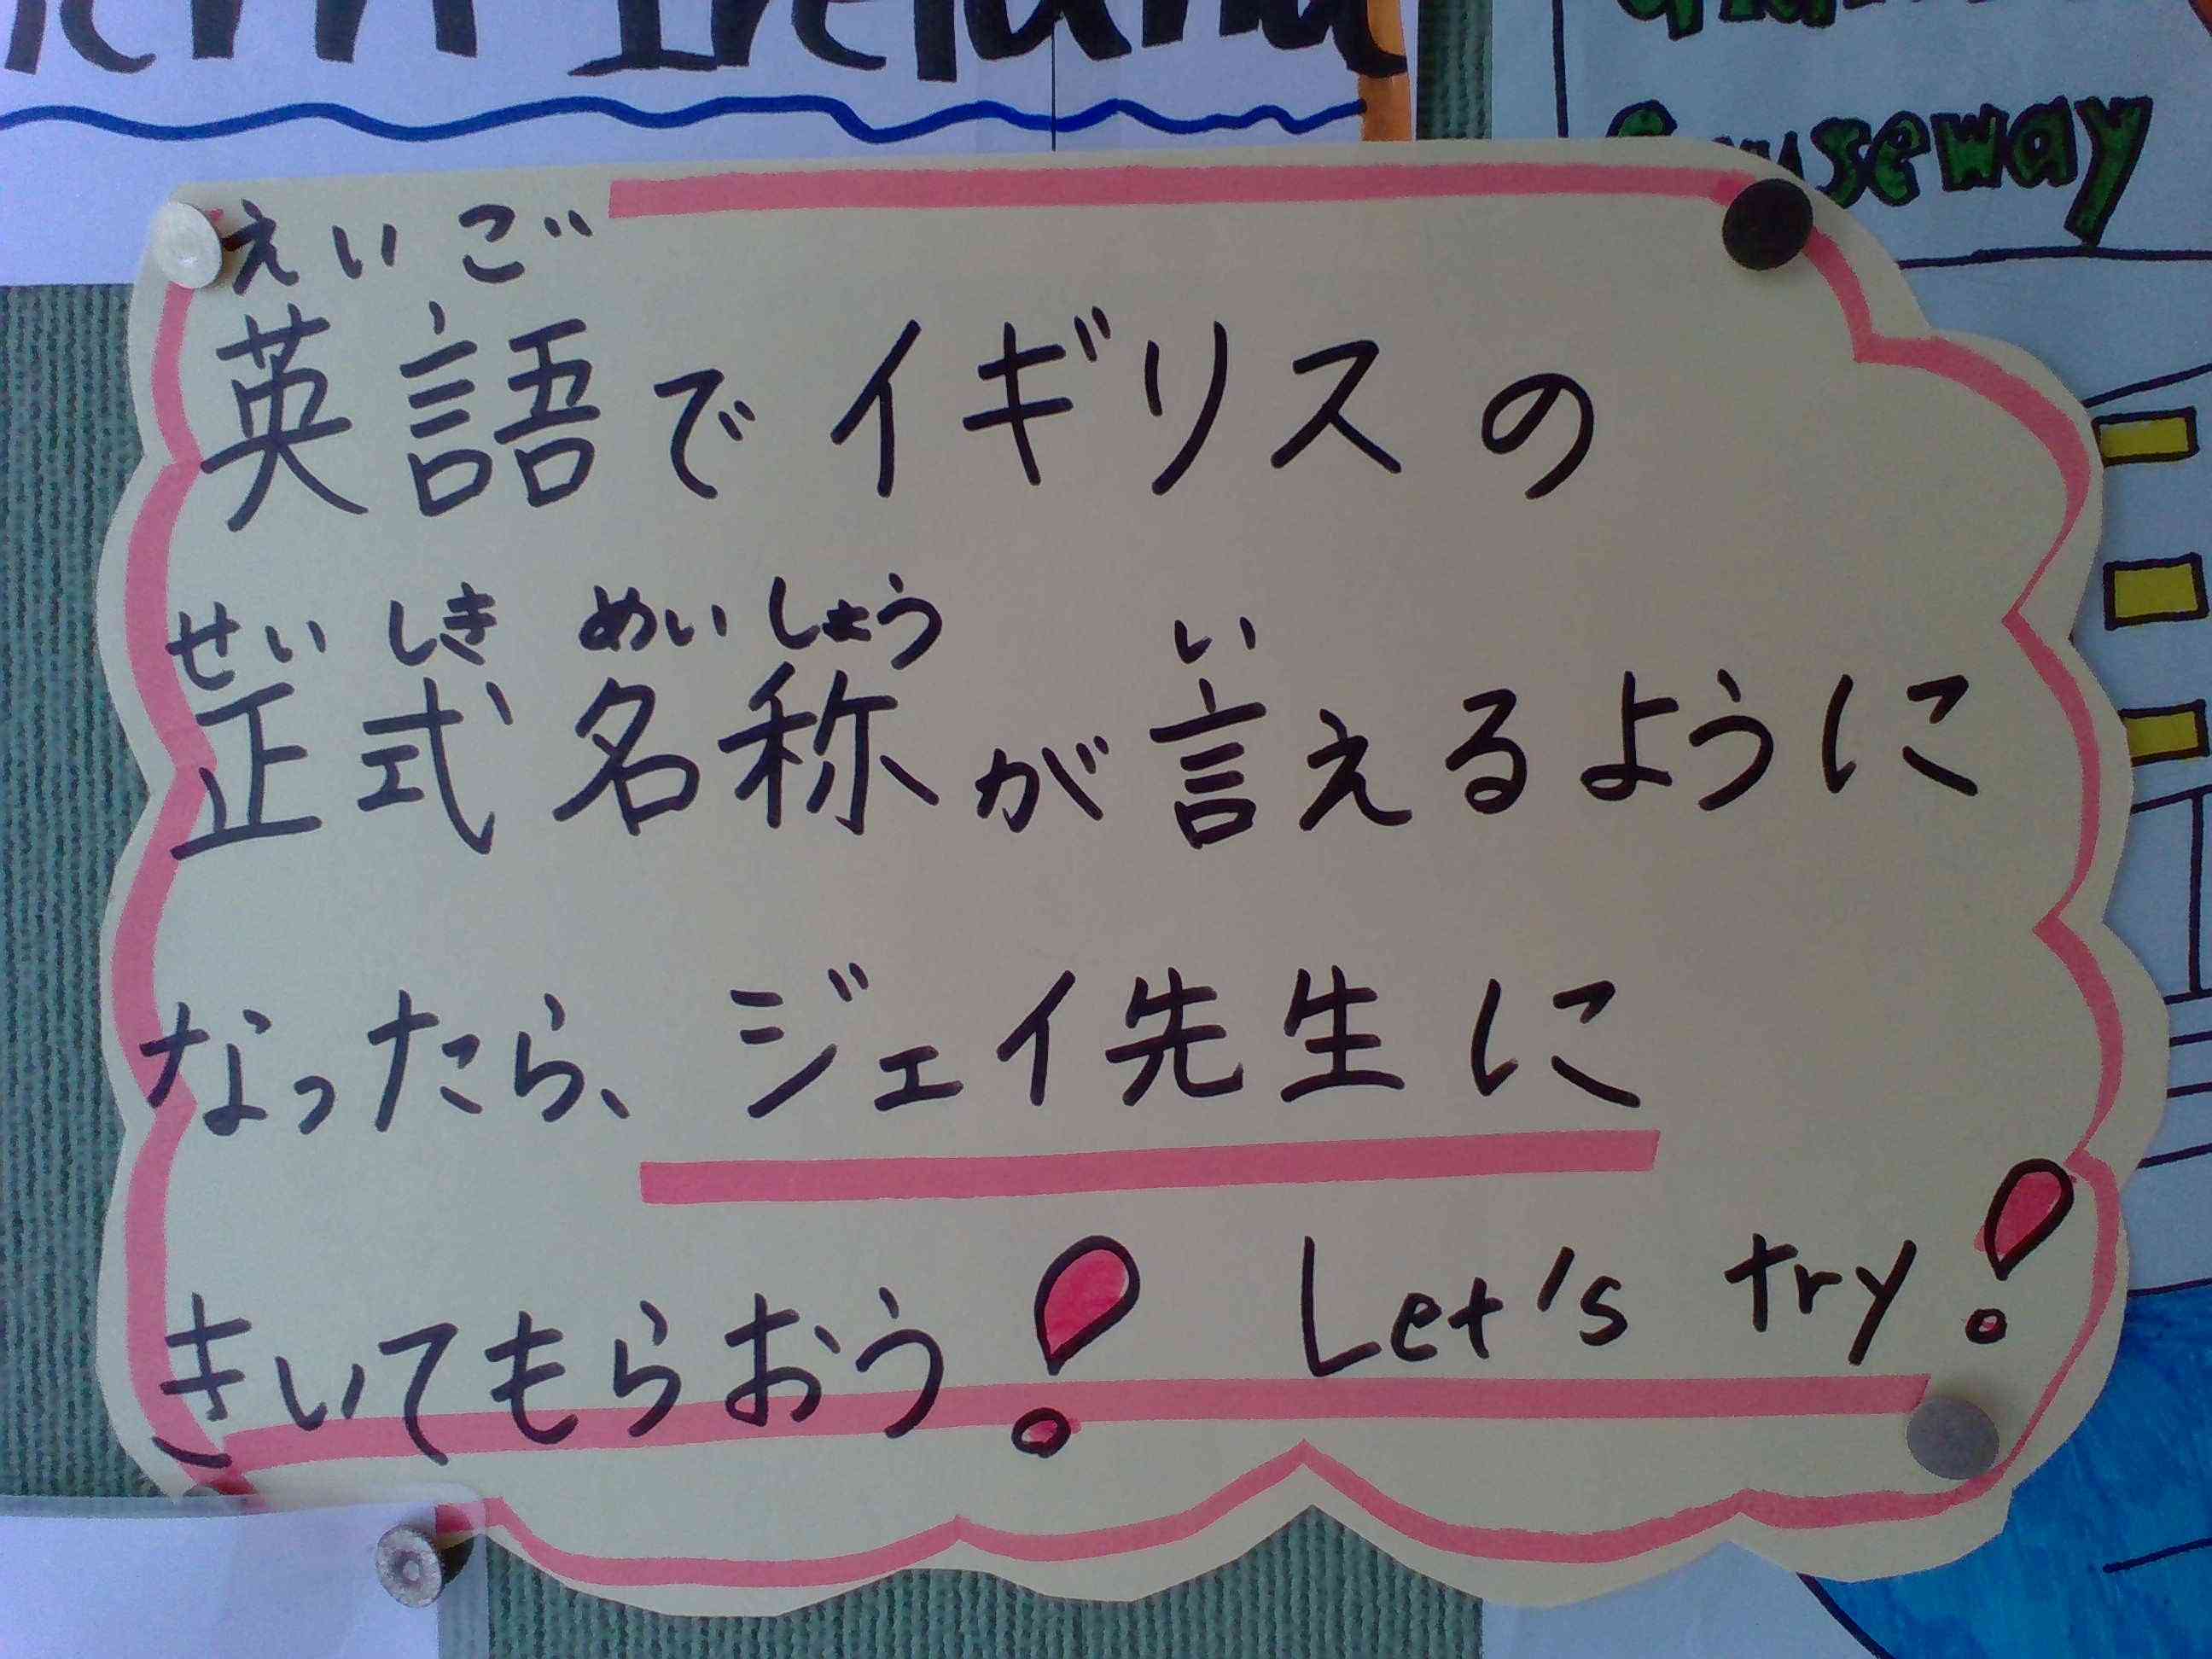 Ireland
Causeway
えいご
英語でイギリスの
せいしきめいしょう い
正式名称が言えるように
なったら、ジェイ先生に
きいてもらおう! Let's try!